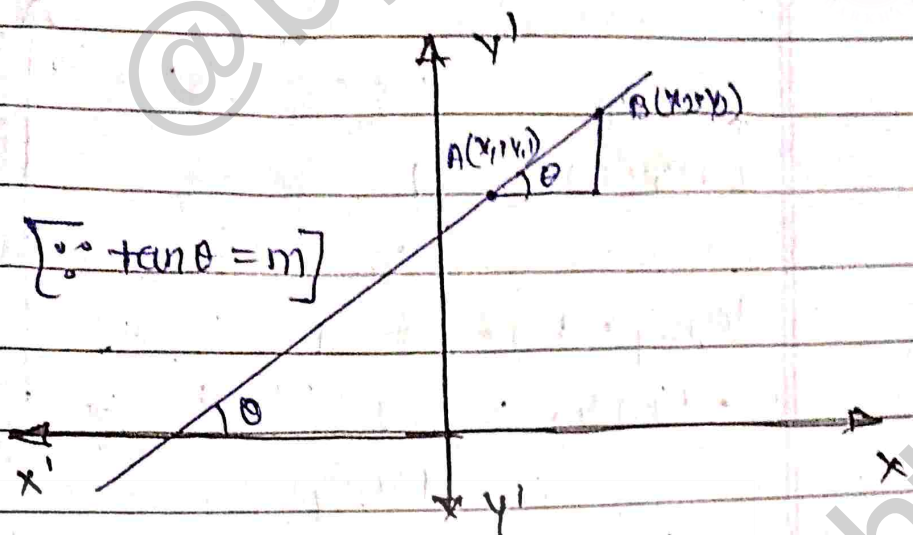 Y'
B(x₂, y₂)
A(x₁, y₁)
θ
[∵ tan θ = m]
θ
X'
X
Y'